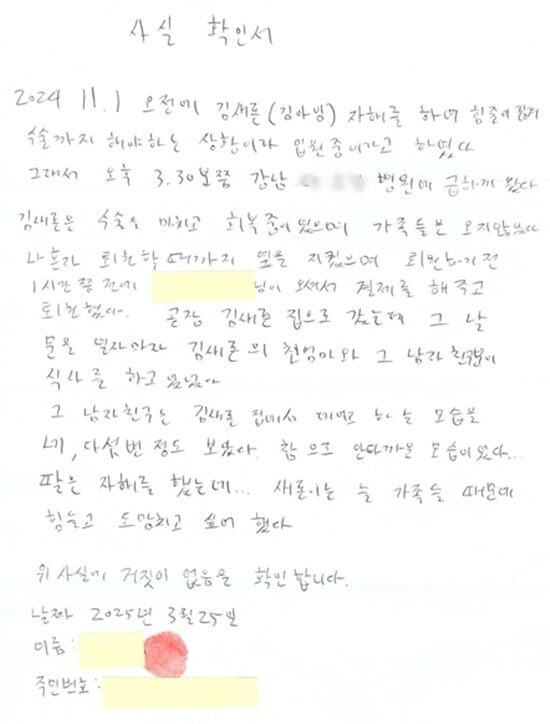 사실 확인서
2024 11.1 오전에 김새론(김아임) 자해를 하여 힘줄이
수술까지 해야하는 상황이라 입원중이라고 하였다
그래서 오후 3.30분쯤 강남 병원에 급하게 갔다
김새론은 수술을 마치고 회복중이었으며 가족들은 오지않았다
나혼자 퇴원할때까지 옆을 지켰으며 퇴원하기전
1시간쯤 전에 님이 오셔서 결제를 해주고
퇴원했다. 곧장 김새론 집으로 갔는데 그 날
문을 열자마자 김새론의 친엄마와 그 남자친구분이
식사를 하고 있었다
그 남자친구는 김새론 집에서 데이트 하는 모습을
네, 다섯번 정도 보았다. 참으로 안타까운 모습이었다...
팔은 자해를 했는데... 새론이는 늘 가족들 때문에
힘들고 도망치고 싶어 했다
위 사실에 거짓이 없음을 확인합니다.
날짜 2025년 3월25일
이름:
주민번호: